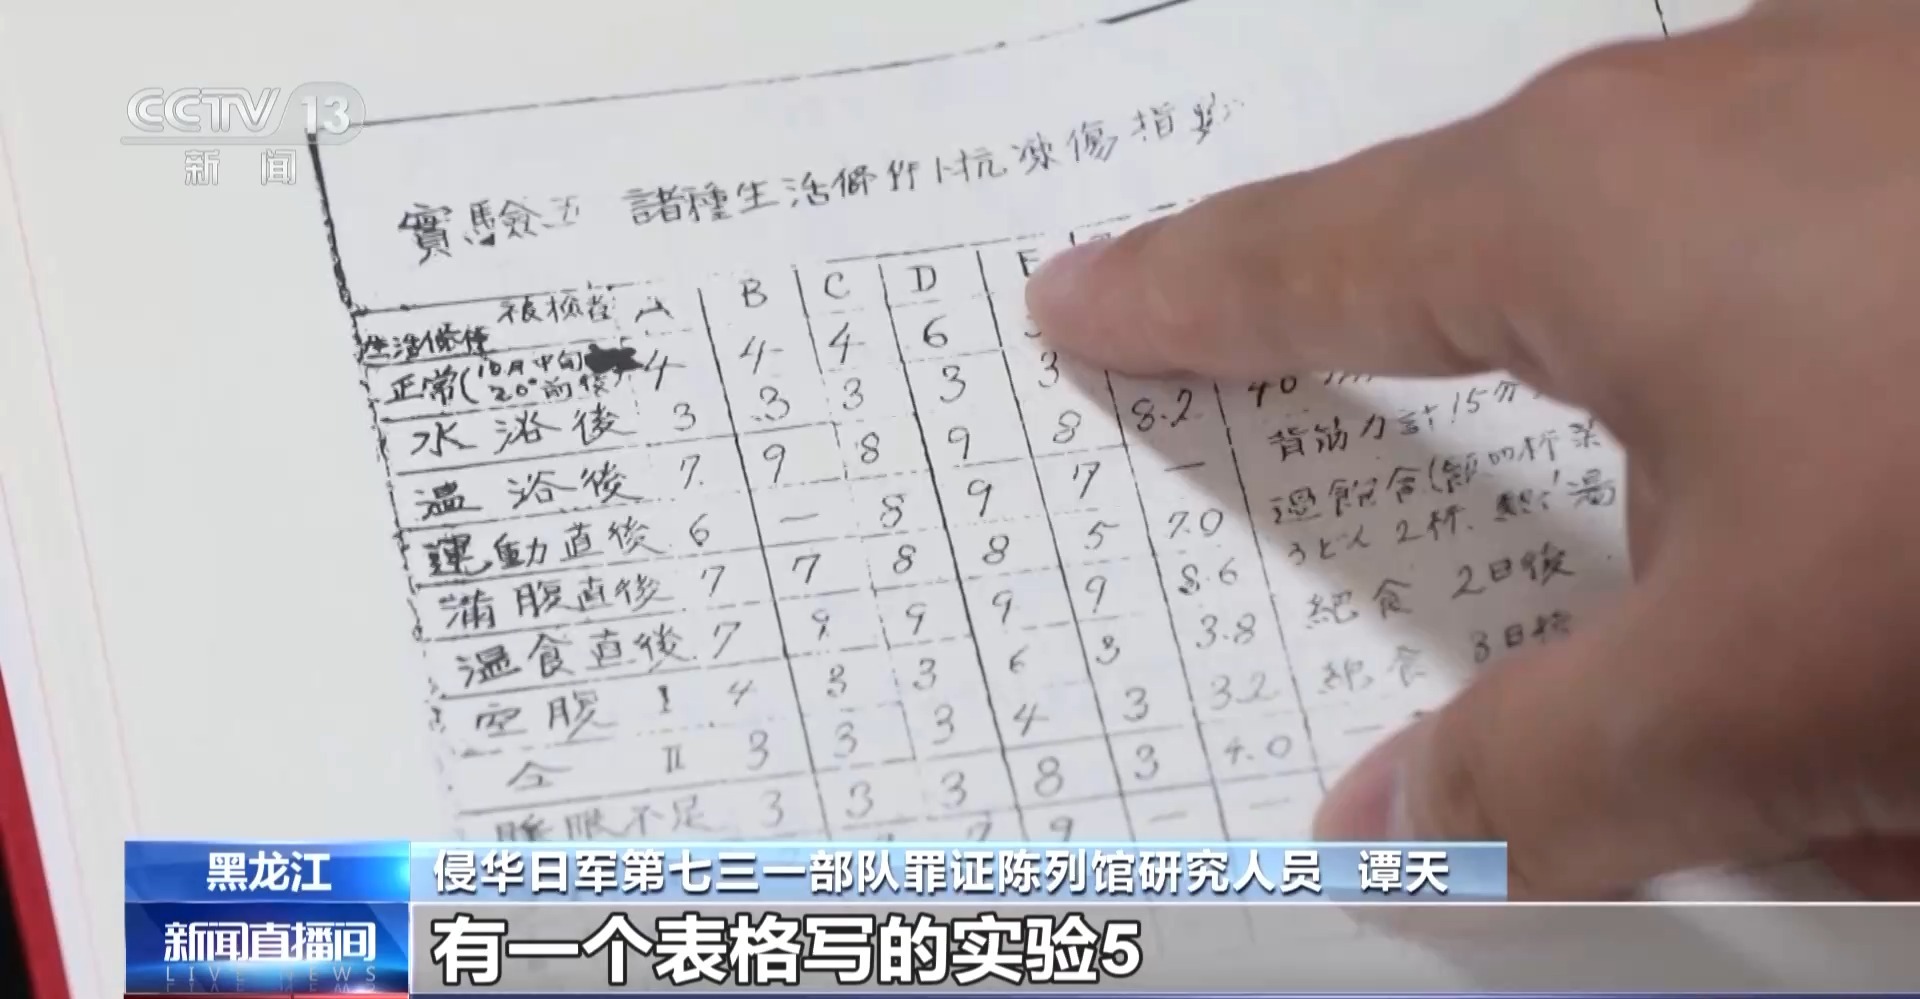 CCTV 13
新闻
實驗五 諸種生活條件ト抗凍傷指數
被檢者 A B C D E
生活條件
正常(10月中旬 20°前後) 4 4 4 6
水浴後 3 3 3 3 3
温浴後 7 9 8 9 8 8.2
運動直後 6 — 8 9 7 —
満腹直後 7 7 8 8 5 7.0
温食直後 7 9 9 9 9 8.6
空腹 I 4 3 3 6 3 3.8
仝 II 3 3 3 4 3 3.2
睡眠不足 3 3 3 8 3 4.0
背筋力計15分
過飽食
うどん2杯
絶食 2日後
絶食 3日後
黑龙江
侵华日军第七三一部队罪证陈列馆研究人员 谭天
新闻直播间
LIVE NEWS
有一个表格写的实验5